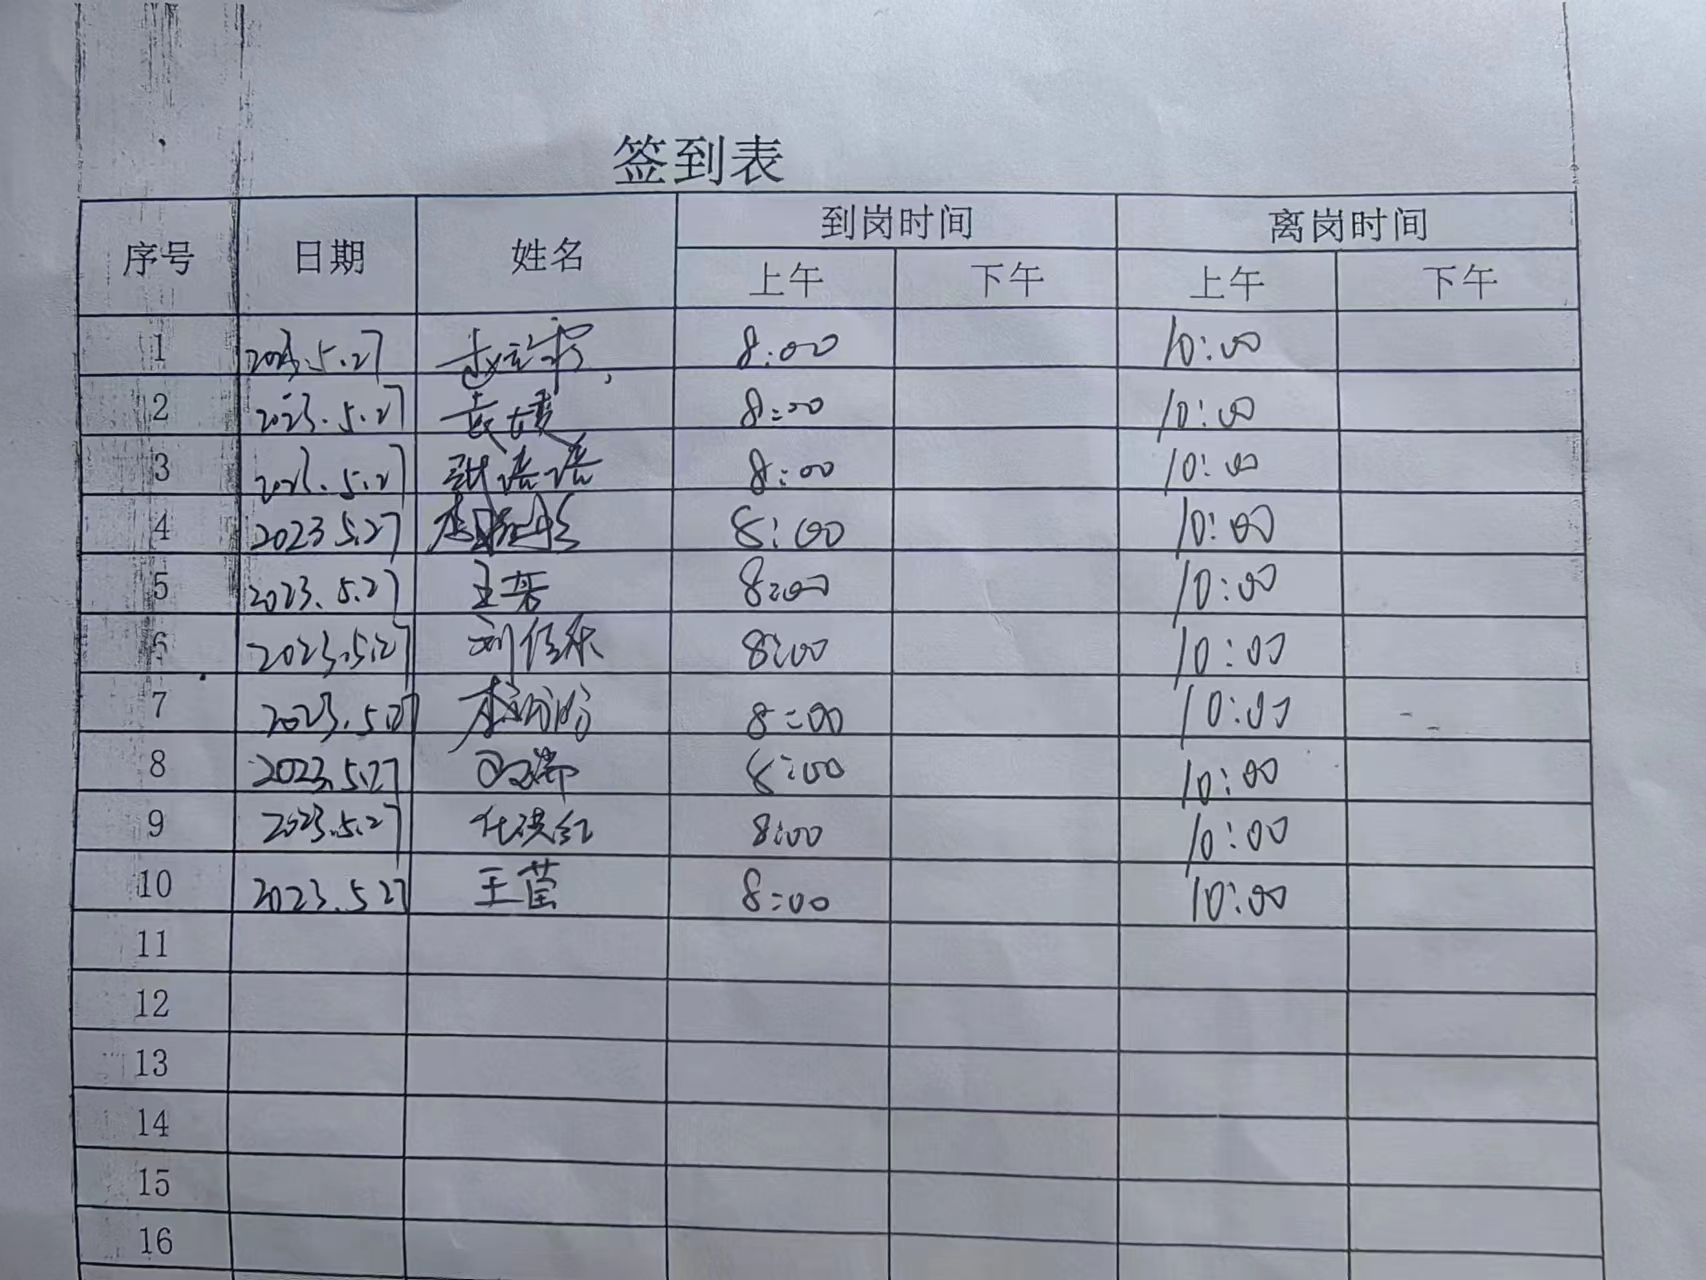 签到表
序号 日期 姓名 到岗时间 离岗时间
上午 下午 上午 下午
1 2023.5.27 8:00 10:00
2 2023.5.27 袁媛 8:00 10:00
3 2023.5.27 8:00 10:00
4 2023 5.27 8:00 10:00
5 2023.5.27 王君 8:00 10:00
6 2023.5.27 8:00 10:00
7 2023.5.27 8:00 10:00
8 2023.5.27 8:00 10:00
9 2023.5.27 8:00 10:00
10 2023.5 27 王莹 8:00 10:00
11
12
13
14
15
16